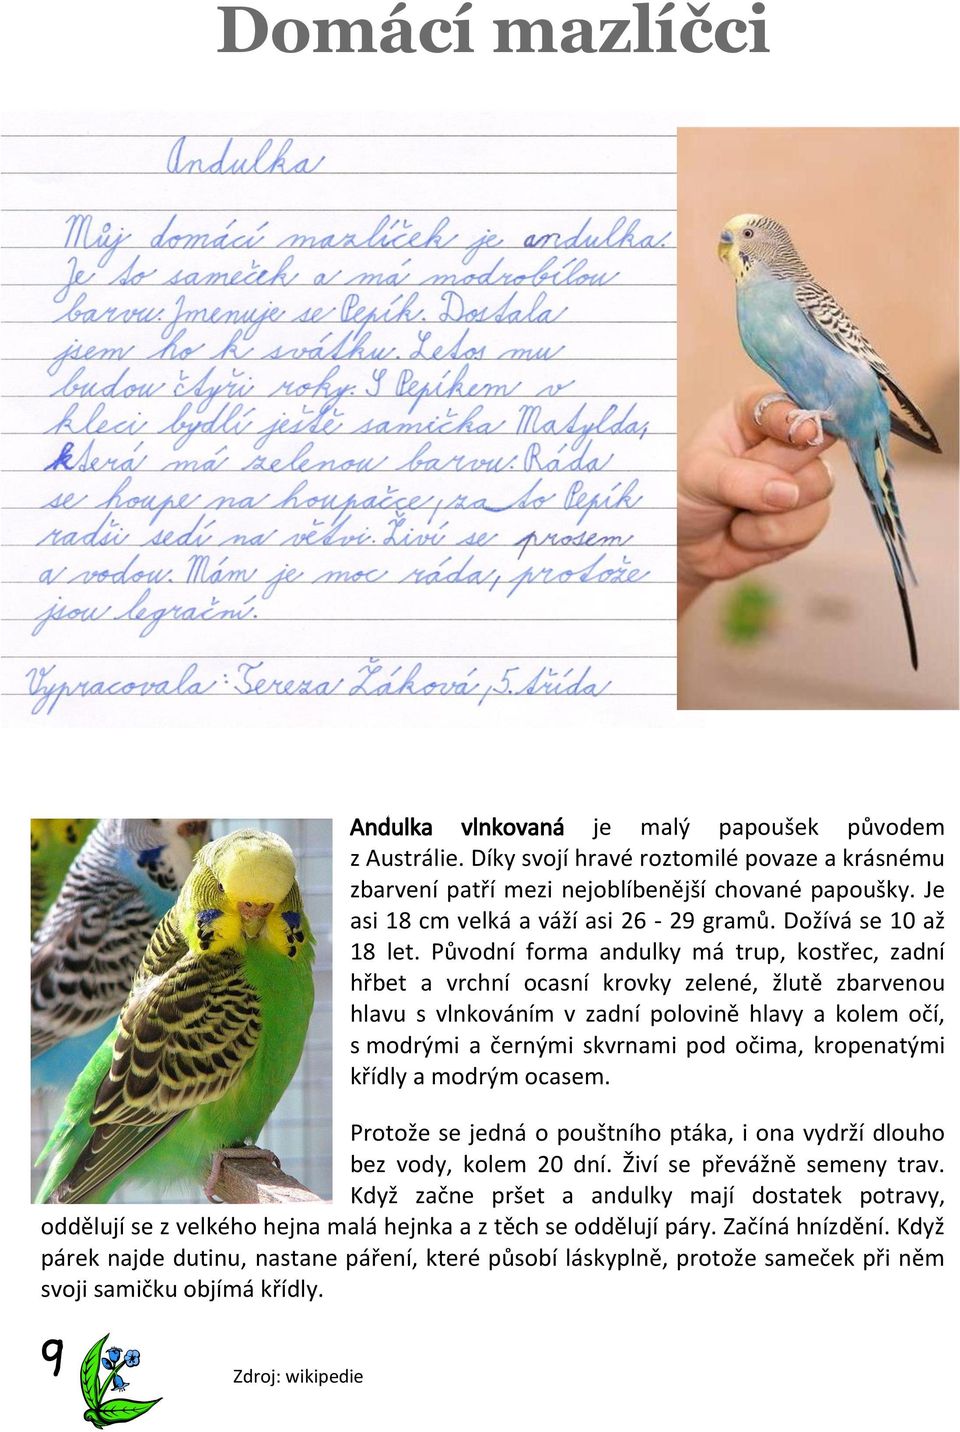 Domácí mazlíčci
Andulka
Můj domácí mazlíček je andulka.
Je to sameček a má modrobílou
barvu. Jmenuje se Pepík. Dostala
jsem ho k svátku. Letos mu
budou čtyři roky. S Pepíkem v
kleci bydlí ještě samička Matylda,
která má zelenou barvu. Ráda
se houpe na houpačce, za to Pepík
radši sedí na větvi. Živí se prosem
a vodou. Mám je moc ráda, protože
jsou legrační.
Vypracovala: Tereza Žáková, 5. třída
Andulka vlnkovaná je malý papoušek původem
z Austrálie. Díky svojí hravé roztomilé povaze a krásnému
zbarvení patří mezi nejoblíbenější chované papoušky. Je
asi 18 cm velká a váží asi 26 - 29 gramů. Dožívá se 10 až
18 let. Původní forma andulky má trup, kostřec, zadní
hřbet a vrchní ocasní krovky zelené, žlutě zbarvenou
hlavu s vlnkováním v zadní polovině hlavy a kolem očí,
s modrými a černými skvrnami pod očima, kropenatými
křídly a modrým ocasem.
Protože se jedná o pouštního ptáka, i ona vydrží dlouho
bez vody, kolem 20 dní. Živí se převážně semeny trav.
Když začne pršet a andulky mají dostatek potravy,
oddělují se z velkého hejna malá hejnka a z těch se oddělují páry. Začíná hnízdění. Když
párek najde dutinu, nastane páření, které působí láskyplně, protože sameček při něm
svoji samičku objímá křídly.
9
Zdroj: wikipedie